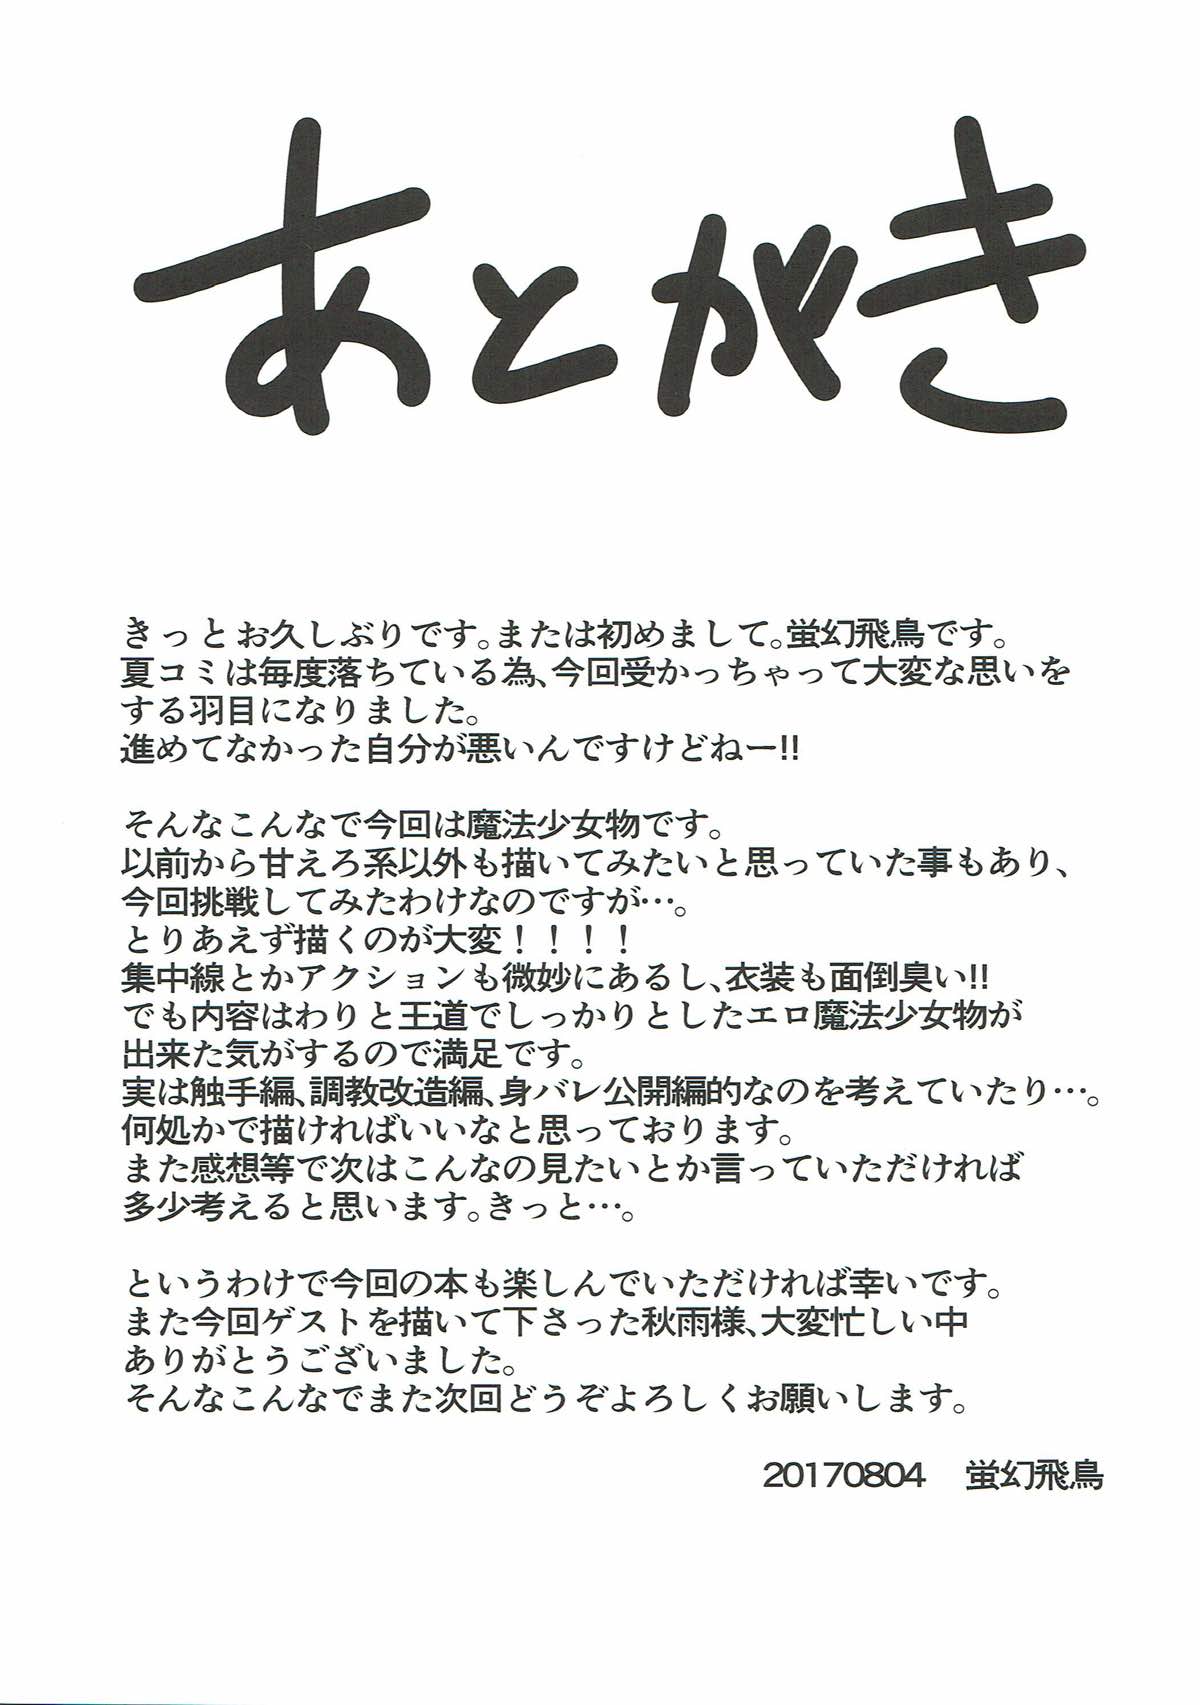 あとがき
きっとお久しぶりです。または初めまして。蛍幻飛鳥です。
夏コミは毎度落ちている為、今回受かっちゃって大変な思いを
する羽目になりました。
進めてなかった自分が悪いんですけどねー!!
そんなこんなで今回は魔法少女物です。
以前から甘えろ系以外も描いてみたいと思っていた事もあり、
今回挑戦してみたわけなのですが…。
とりあえず描くのが大変！！！！
集中線とかアクションも微妙にあるし、衣装も面倒臭い!!
でも内容はわりと王道でしっかりとしたエロ魔法少女物が
出来た気がするので満足です。
実は触手編、調教改造編、身バレ公開編的なのを考えていたり…。
何処かで描ければいいなと思っております。
また感想等で次はこんなの見たいとか言っていただければ
多少考えると思います。きっと…。
というわけで今回の本も楽しんでいただければ幸いです。
また今回ゲストを描いて下さった秋雨様、大変忙しい中
ありがとうございました。
そんなこんなでまた次回どうぞよろしくお願いします。
20170804　蛍幻飛鳥